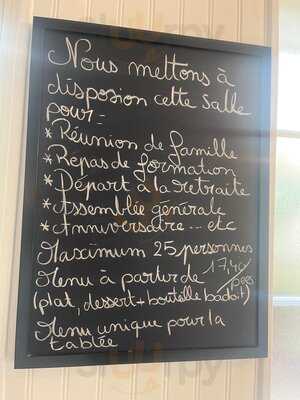 Nous mettons à
disposion cette salle
pour :
* Réunion de famille
* Repas de formation
* Départ à la retraite
* Assemblée générale
* Anniversaire... etc
Maximum 25 personnes
Menu à partir de 17,40/pers
(plat, dessert + bouteille badoit)
Menu unique pour la
tablée